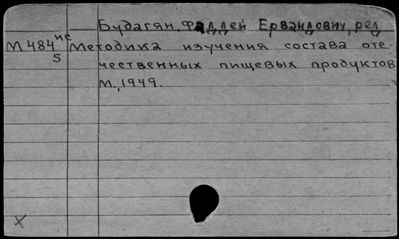 Будагян, Фаддей Ервандович, ред
М484 ис Методика изучения состава оте-
S чественных пищевых продуктов
М., 1949.
x